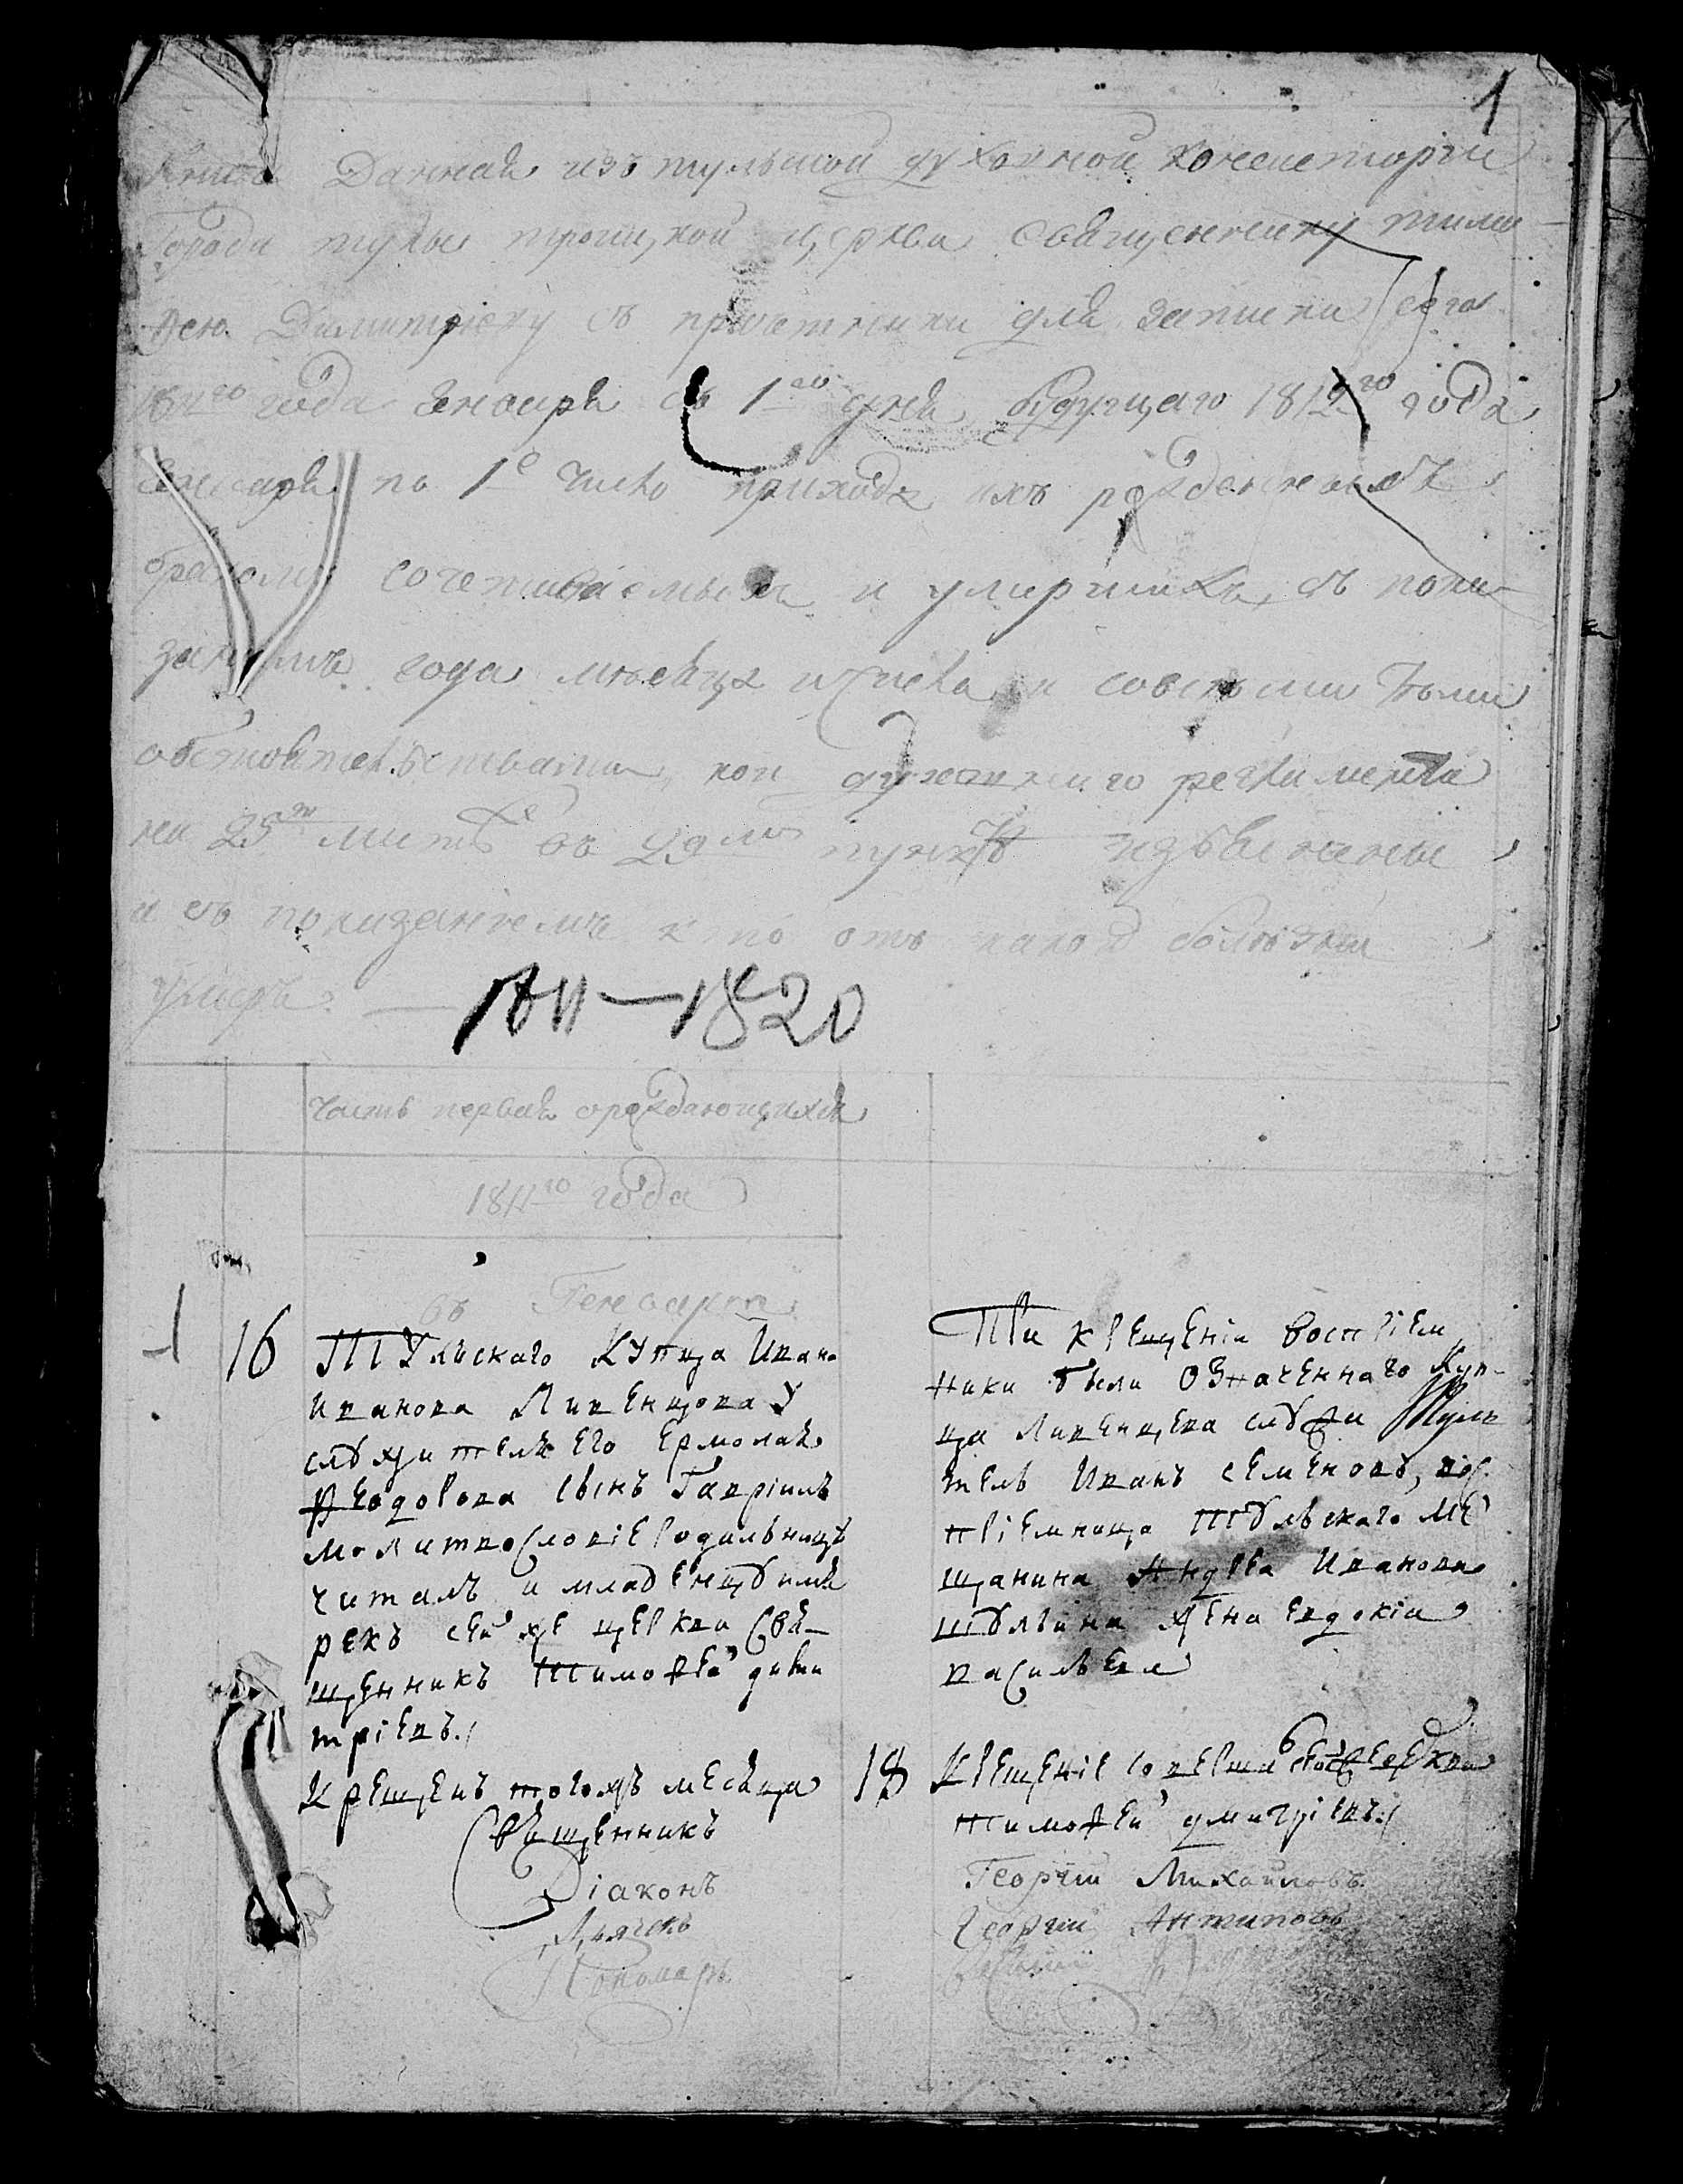 1
Книга Данная изъ тульской духовной консистории
Города тулы троицкой церкви священнику тимо-
фею Димитриеву съ причетники для записки сего
1811го года генваря съ 1го дня будущаго 1812го года
генваря по 1е число прихода ихъ рожденныхъ
бракомъ сочетаваемыхъ и умершихъ, съ пока-
заниемъ года месяца и числа и совсеми теми
обстоятельствами, кои духовнаго регламента
на 25м листе въ 29м пункте изъяснены
и съ показаниемъ кто отъ какой болезни
умеръ. —
1811—1820
Часть первая о раждающихся
1811го года
въ Генваре
1
16 Тульскаго купца Ивана
Иванова Ливенцова у
служителя его Ермолая
Феодорова сынъ Гавріилъ
молитвословіе родильнице
читалъ и младенцу имя
рекъ сей же церкви Свя-
щенникъ Тимофей дими
тріевъ./
Крещенъ тогожъ месяца
При крещеніи воспріем
ники были означеннаго куп-
ца Ливенцева служи
тель Иванъ семеновъ, вос
пріемница Тульскаго ме
щанина Андрея Иванова
жена евдокіа
васильева
18 Крещеніе соверши
тимофей дмитріевъ./
Священникъ
Діаконъ Георгий Михайловъ
Дьячекъ Георгий Антиповъ
Пономарь